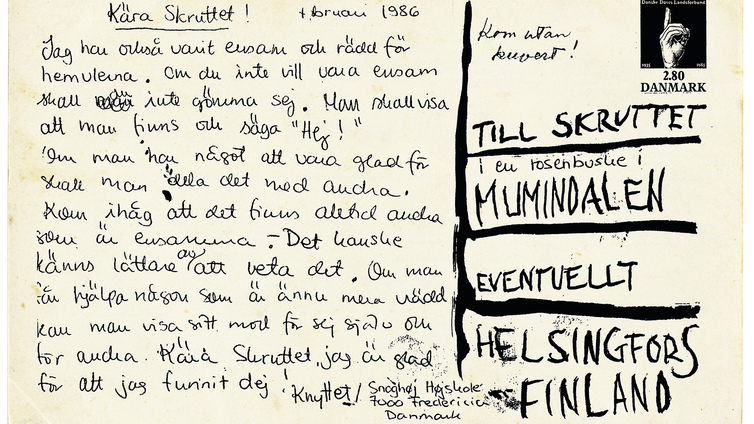 Kära Skruttet! februari 1986
Jag har också varit ensam och rädd för
hemulerna. Om du inte vill vara ensam
skall inte gömma sej. Man skall visa
att man finns och säga "Hej!"
Om man har något att vara glad för
skall man dela det med andra.
Kom ihåg att det finns alltid andra
som är ensamma – Det kanske
känns lättare av att veta det. Om man
får hjälpa någon som är ännu mera rädd
kan man visa sitt mod för sej själv och
för andra. Kära Skruttet, jag är glad
för att jag funnit dej!
Knyttet / Snoghøj Højskole
7000 Fredericia
Danmark
Kom utan
kuvert!
Danske Døves Landsforbund
1935 1985
2.80
DANMARK
TILL SKRUTTET
i en rosenbuske i
MUMINDALEN
EVENTUELLT
HELSINGFORS
FINLAND